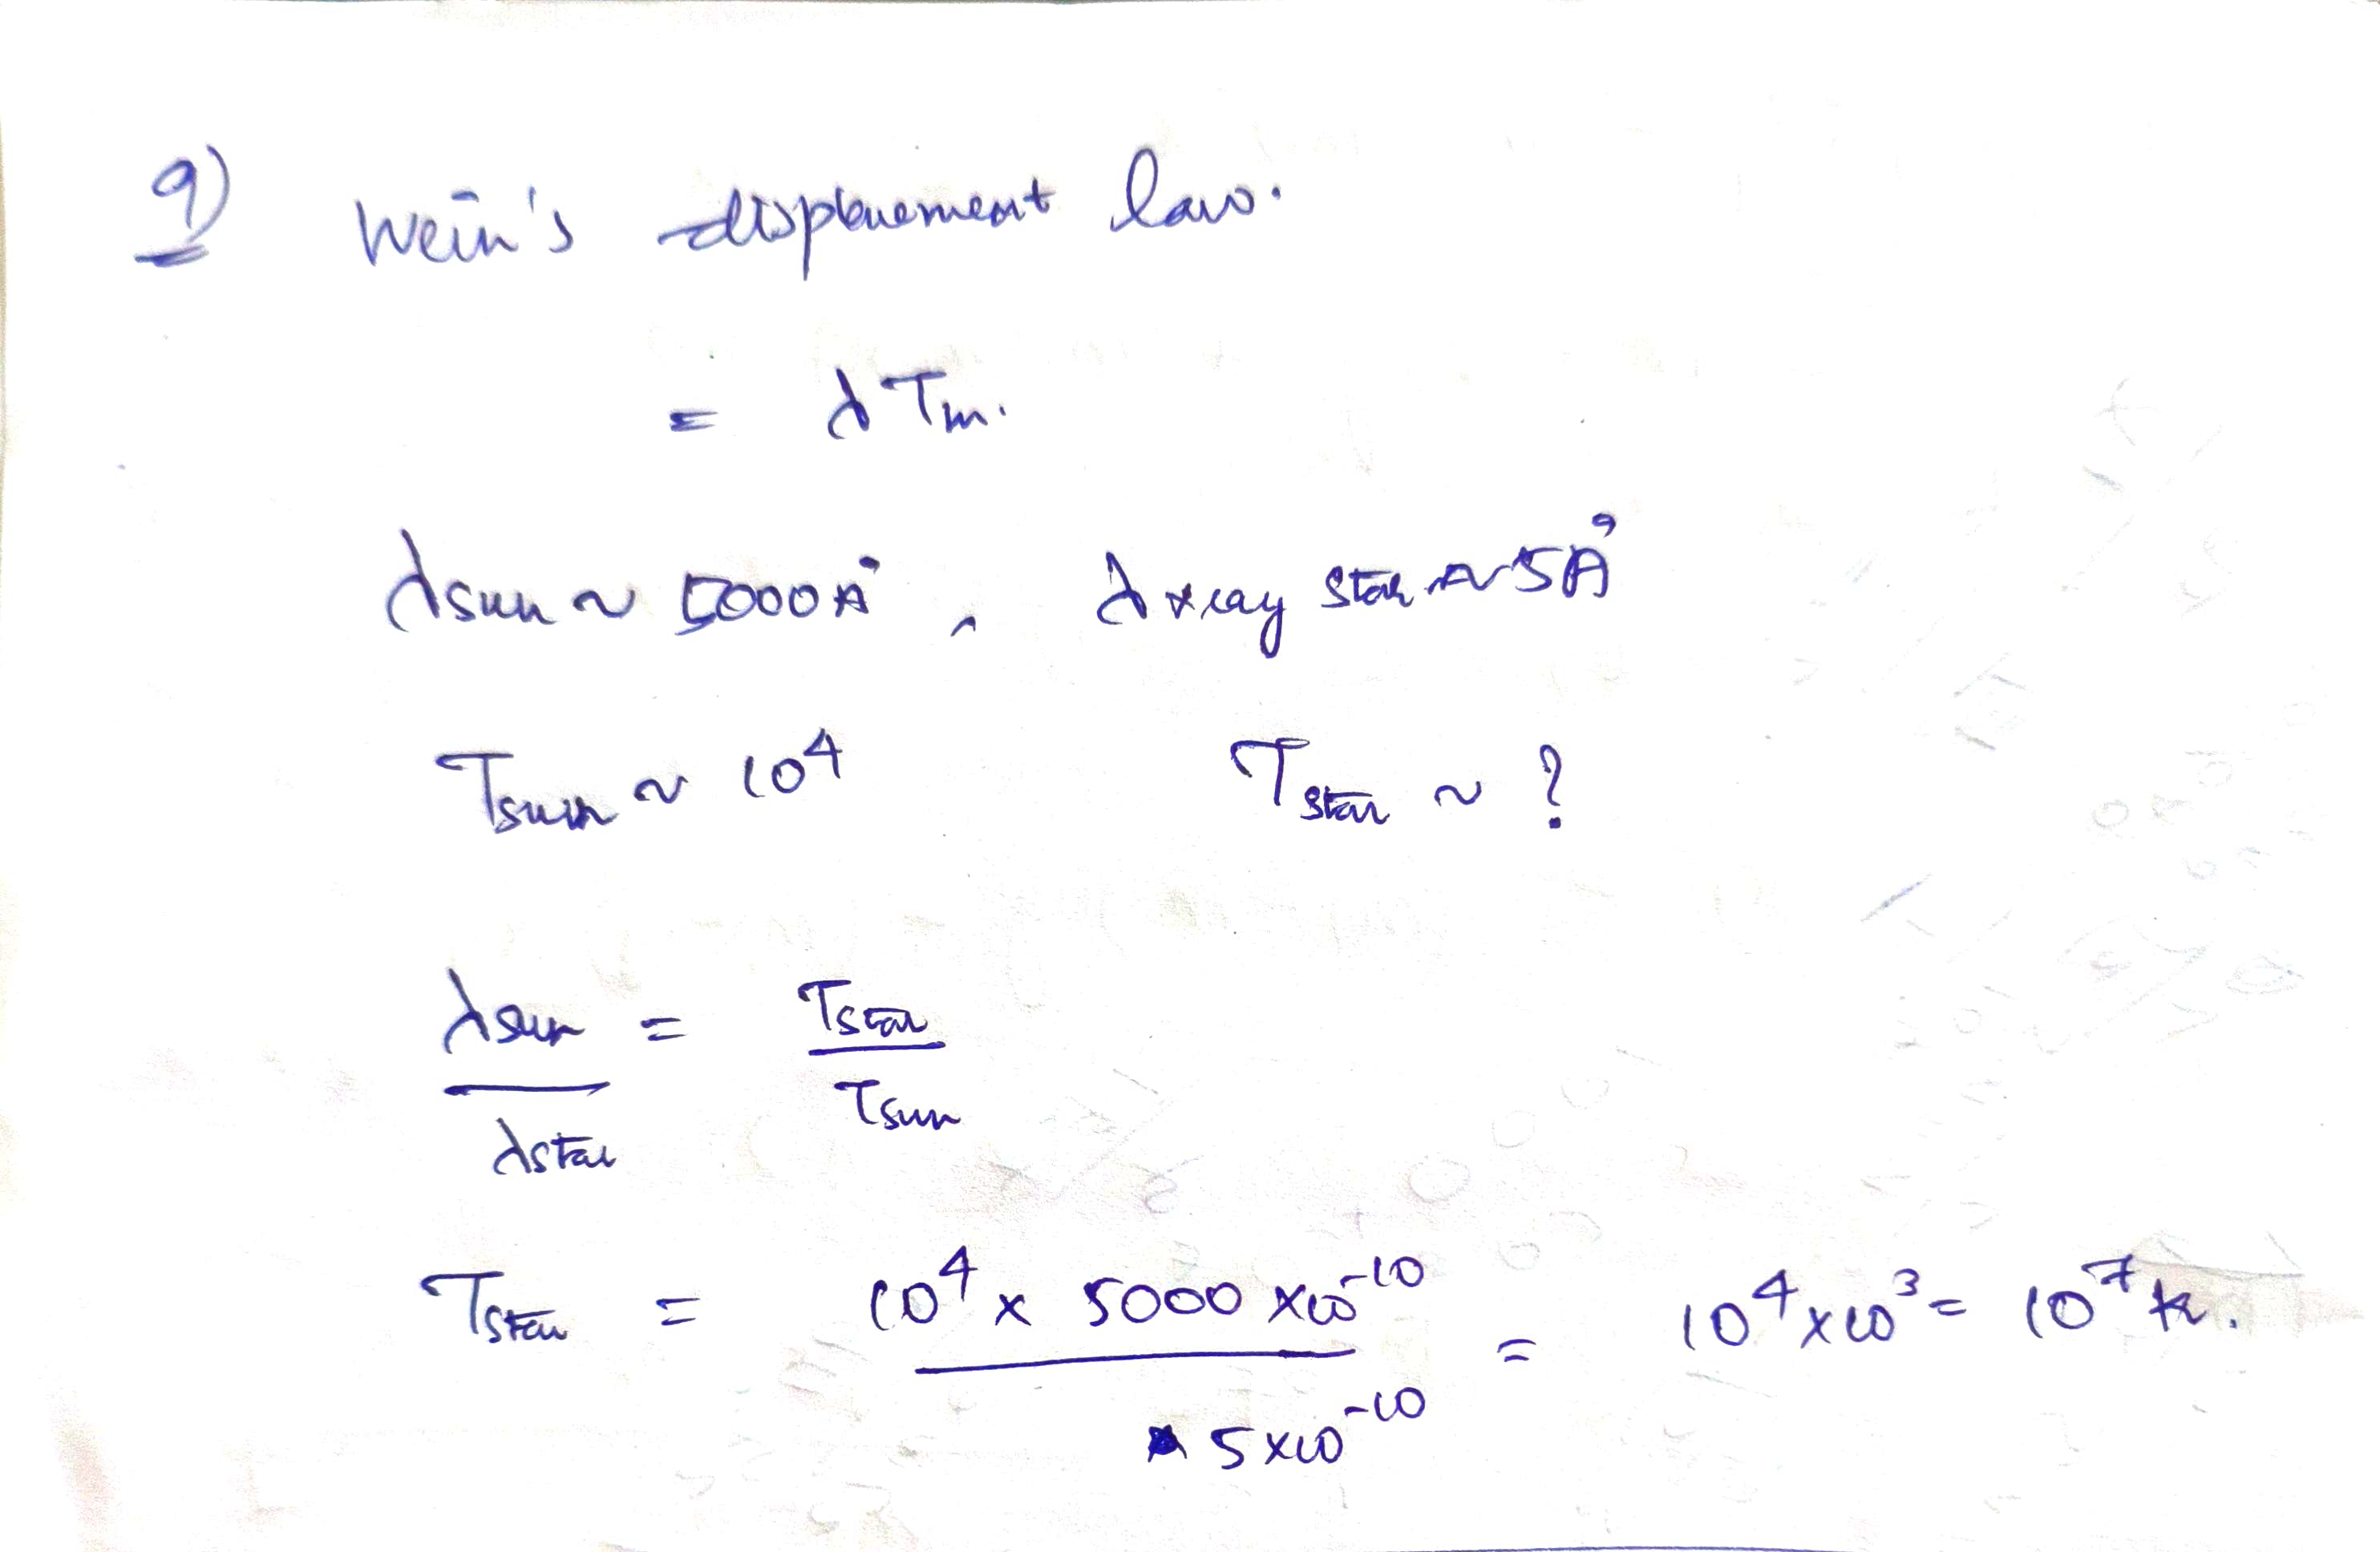 9) Wein's displacement law.
= λTm.
λsun ~ 5000Å, λxray star ~ 5Å
Tsun ~ 10⁴ Tstar ~ ?
λsun/λstar = Tstar/Tsun
Tstar = 10⁴ x 5000 x10⁻¹⁰ / 5x10⁻¹⁰ = 10⁴x10³ = 10⁷ k.